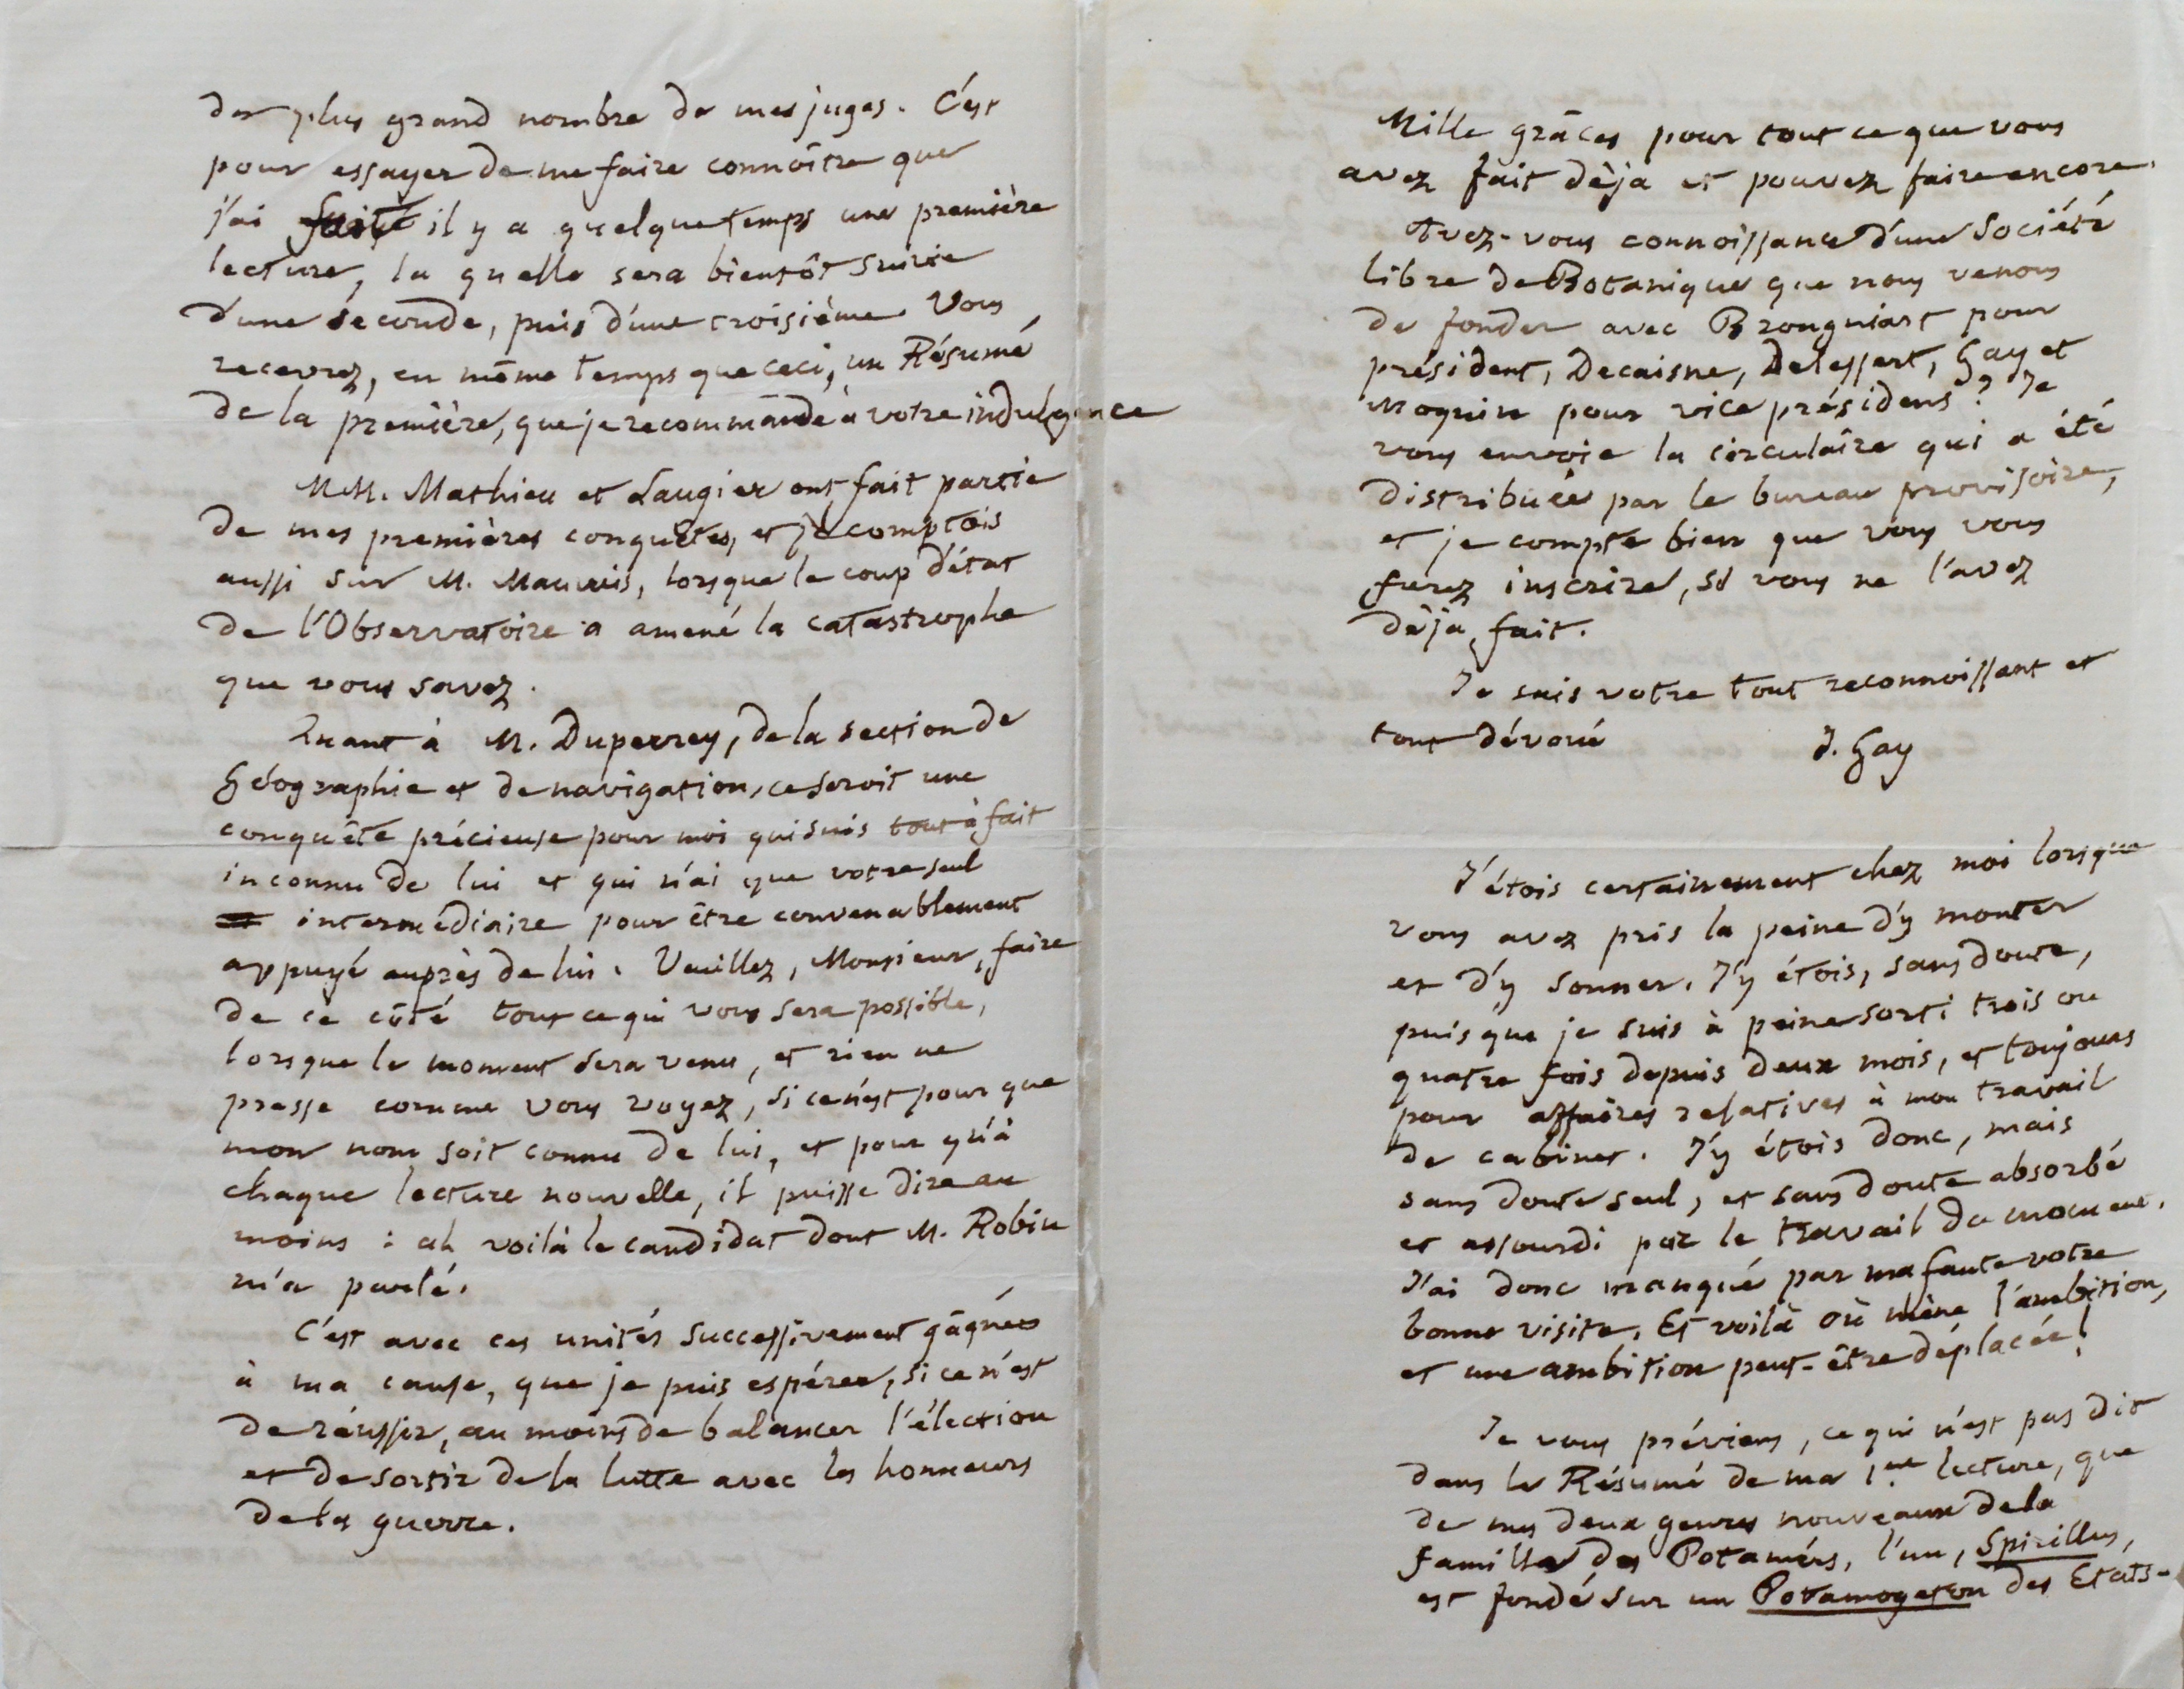 du plus grand nombre de mes juges. C'est
pour essayer de me faire connoître que
j'ai fait il y a quelque temps une première
lecture, la quelle sera bientôt suivie
d'une seconde, puis d'une troisième. Vous
recevrez, en même temps que ceci, un Résumé
de la première, que je recommande à votre indulgence
MM. Mathieu et Laugier ont fait partie
de mes premières conquêtes, et je comptois
aussi sur M. Mauvais, lorsque le coup d'état
de l'Observatoire a amené la catastrophe
que vous savez.
Quant à M. Duperrey, de la section de
Géographie et de navigation, ce seroit une
conquête précieuse pour moi qui suis tout à fait
inconnu de lui et qui n'ai que votre seul
intermédiaire pour être convenablement
appuyé auprès de lui. Veuillez, Monsieur, faire
de ce côté tout ce qui vous sera possible,
lorsque le moment sera venu, et rien ne
presse comme vous voyez, si ce n'est pour que
mon nom soit connu de lui, et pour qu'à
chaque lecture nouvelle, il puisse dire au
moins : ah voilà le candidat dont M. Robin
m'a parlé.
C'est avec ces unités successivement gâgnées
à ma cause, que je puis espérer, si ce n'est
de réussir, au moins de balancer l'élection
et de sortir de la lutte avec les honneurs
de la guerre.
Mille grâces pour tout ce que vous
avez fait déjà et pouvez faire encore.
Avez-vous connoissance d'une Société
libre de Botanique que nous venons
de fonder avec Brongniart pour
président, Decaisne, Delessert, Gay et
Moquin pour vice présidens ? Je
vous envoie la circulaire qui a été
distribuée par le bureau provisoire,
et je compte bien que vous vous
ferez inscrire, si vous ne l'avez
déjà fait.
Je suis votre tout reconnoissant et
tout dévoué J. Gay
J'étois certainement chez moi lorsque
vous avez pris la peine d'y monter
et d'y sonner. J'y étois, sans doute,
puisque je suis à peine sorti trois ou
quatre fois depuis deux mois, et toujours
pour affaires relatives à mon travail
de cabinet. J'y étois donc, mais
sans doute seul, et sans doute absorbé
et assourdi par le travail du moment.
J'ai donc manqué par ma faute votre
bonne visite. Et voilà où mène l'ambition,
et une ambition peut-être déplacée!
Je vous préviens, ce qui n'est pas dit
dans le Résumé de ma 1re lecture, que
de mes deux genres nouveaux de la
famille des Potamées, l'un, Spirillus,
est fondé sur un Potamogeton des Etats-